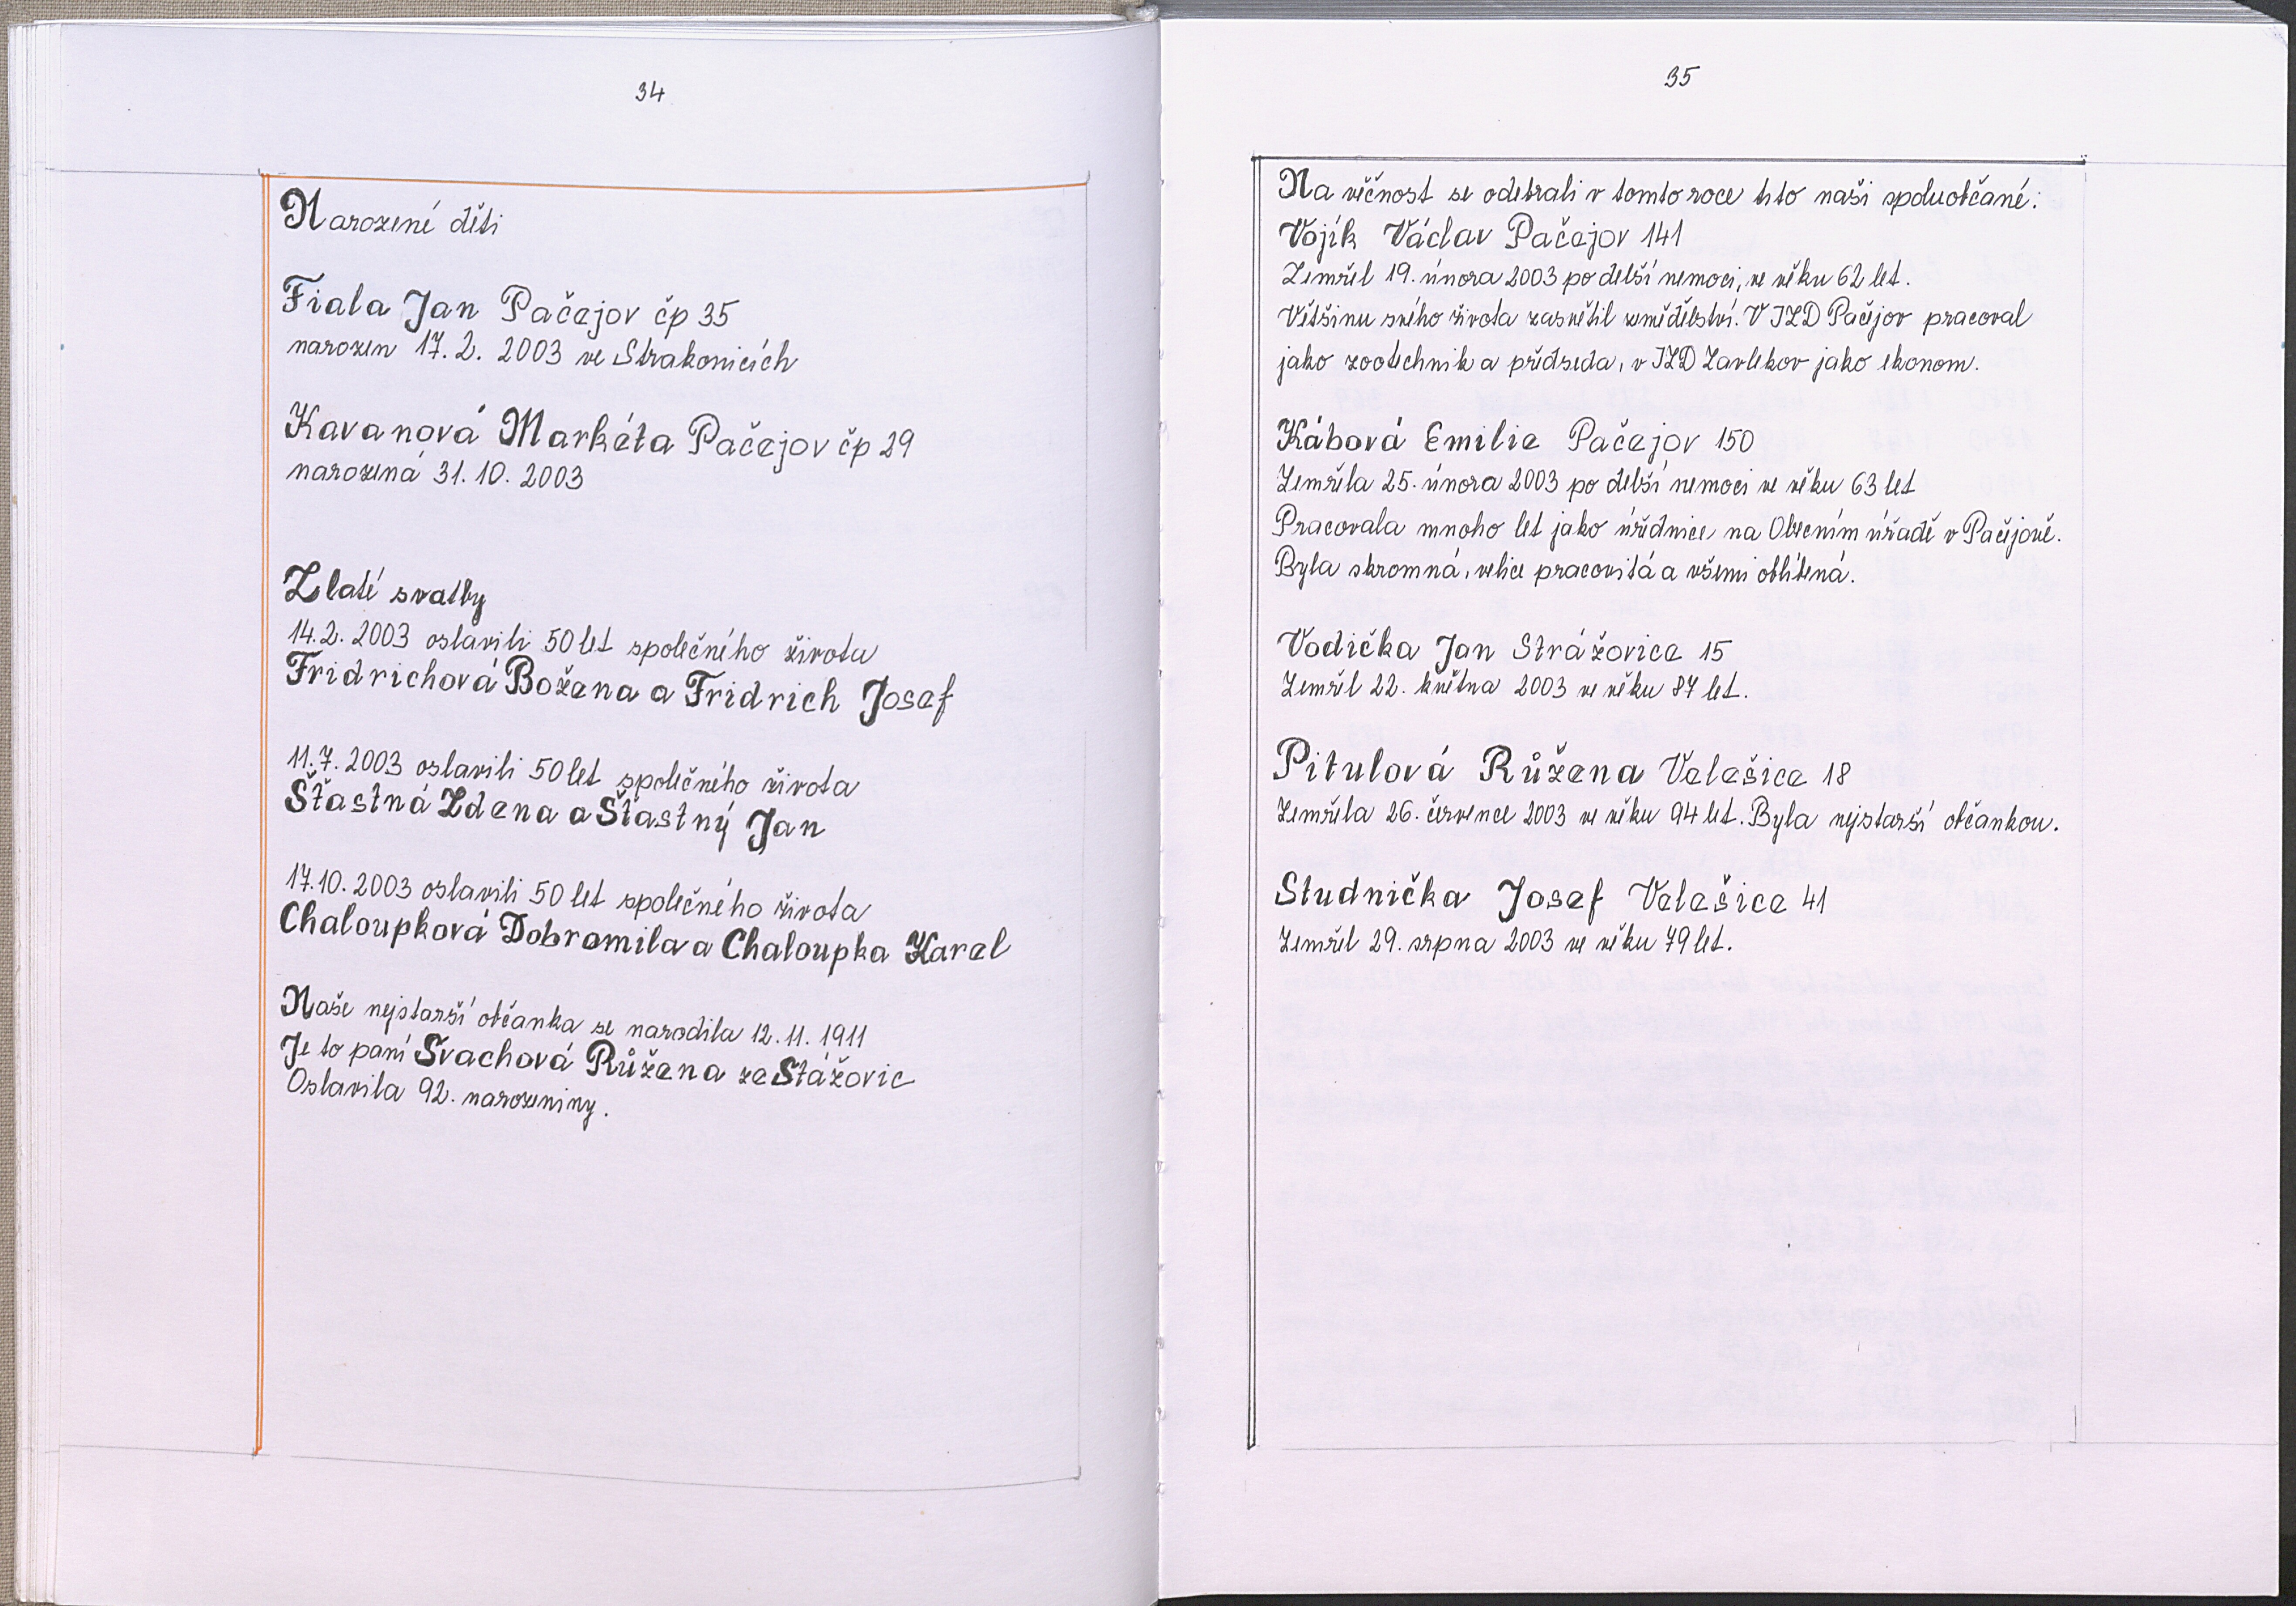 34
Narozené děti
Fiala Jan Pačejov čp 35
narozen 17. 2. 2003 ve Strakonicích
Kavanová Markéta Pačejov čp 29
narozená 31. 10. 2003
Zlaté svatby
14. 2. 2003 oslavili 50 let společného života
Fridrichová Božena a Fridrich Josef
11. 7. 2003 oslavili 50 let společného života
Šťastná Zdena a Šťastný Jan
17. 10. 2003 oslavili 50 let společného života
Chaloupková Dobromila a Chaloupka Karel
Naše nejstarší občanka se narodila 12. 11. 1911
Je to paní Švachová Růžena ze Stážovic
Oslavila 92. narozeniny.
35
Na věčnost se odebrali v tomto roce tito naši spoluobčané:
Vojík Václav Pačejov 141
Zemřel 19. února 2003 po delší nemoci, ve věku 62 let.
Většinu svého života zasvětil zemědělství. V JZD Pačejov pracoval
jako zootechnik a předseda, v JZD Zavlekov jako ekonom.
Kábová Emilie Pačejov 150
Zemřela 25. února 2003 po delší nemoci ve věku 63 let
Pracovala mnoho let jako úřednice na Obecním úřadě v Pačejově.
Byla skromná, velice pracovitá a všemi oblíbená.
Vodička Jan Strážovice 15
Zemřel 22. května 2003 ve věku 87 let.
Pitulová Růžena Velešice 18
Zemřela 26. července 2003 ve věku 94 let. Byla nejstarší občankou.
Studnička Josef Velešice 41
Zemřel 29. srpna 2003 ve věku 79 let.